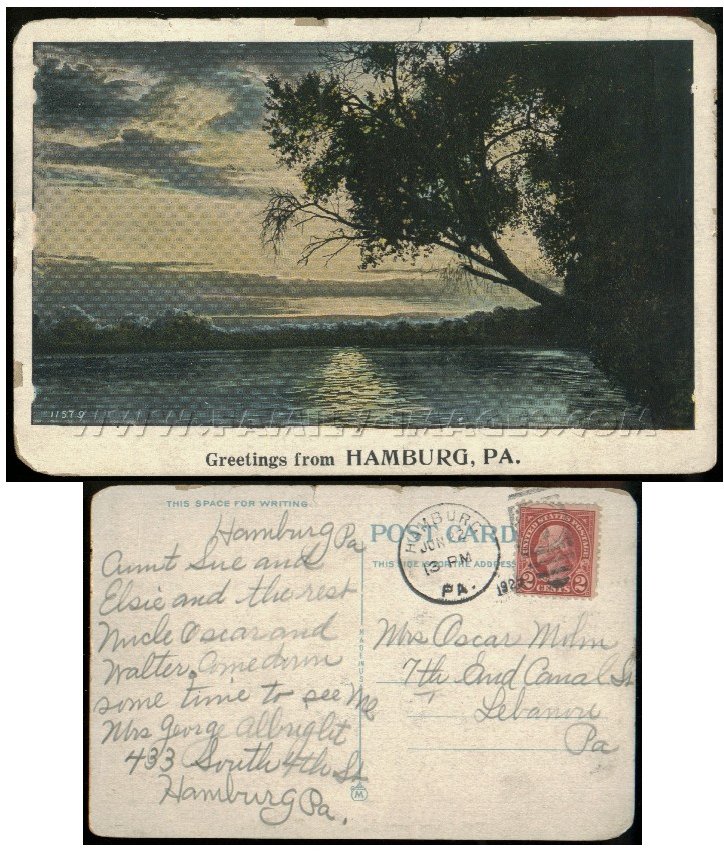 11579
WWW.FAMILY-IMAGES.COM
Greetings from HAMBURG, PA.
THIS SPACE FOR WRITING
Hamburg Pa
Aunt Sue and
Elsie and the rest
Nucle Oscar and
Walter. Come down
some time to see Me
Mrs George Albright
433 South 4th St
Hamburg Pa.
MADE IN USA
M
POST CARD
THIS SIDE IS FOR THE ADDRESS
HAMBURG
JUN
PM
PA.
UNITED STATES POSTAGE
2 CENTS 2
Mrs Oscar
7th And Canal St
Lebanon
Pa